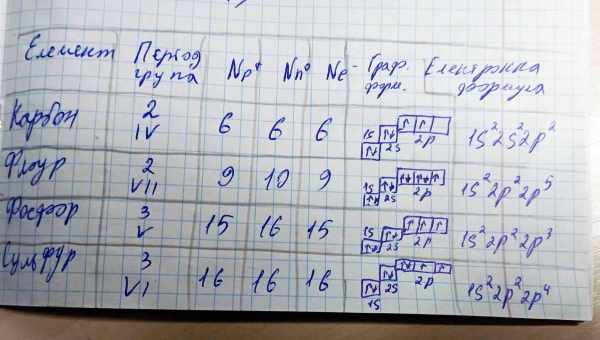 Елемент Період група Np⁺ Nn⁰ Ne⁻ Граф. форм. Електронна формула
Карбон 2 IV 6 6 6 1s ↑↓ 2s ↑↓ 2p ↑ ↑ 1s²2s²2p²
Флоур 2 VII 9 10 9 1s ↑↓ 2s ↑↓ 2p ↑↓ ↑↓ ↑ 1s²2p²2p⁵
Фосфор 3 V 15 16 15 1s ↑↓ 2s ↑↓ 2p ↑ ↑ ↑ 1s²2p²2p³
Сульфур 3 VI 16 16 16 1s ↑↓ 2s ↑↓ 2p ↑↓ ↑ ↑ 1s²2p²2p⁴